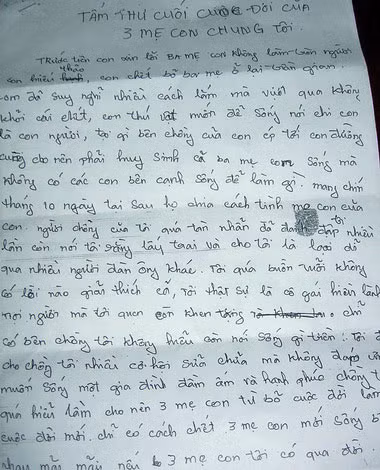 TÂM THƯ CUỐI CUỘC ĐỜI CỦA
3 MẸ CON CHÚNG TÔI.
Trước tiên con xin lỗi BA MẸ con không làm tròn người
con hiếu thảo, con chết bỏ ba mẹ ở lại trần gian.
con đã suy nghĩ nhiều cách lắm mà vượt qua không
khỏi cái chết, con thú vật muốn để sống nói chi con
là con người, tại gì bên chồng của con ép tới con đường
cùng cho nên phải huy sinh cả ba mẹ con sống mà
không có các con bên cạnh sống để làm gì. mang chín
tháng 10 ngày tại sau họ chia cách tình mẹ con của
con. người chồng của tôi quá tàn nhẫn đã đánh đập nhiều
lần còn nói tôi sống lấy traai và cho tôi là loại đổ
qua nhiều người đàn ông khác. Tôi quá buồn tuổi không
có lời nào giải thích cả, tôi thật sự là cô gái hiền lành
mọi người mà tôi quen khen tặng chỉ
có bên chồng tôi không hiểu còn nói sống gì tiền. Tôi đã
cho chồng tôi nhiều cơ hội sữa chữa mà không đáp ứng
muốn sống một gia đình đầm ấm và hạnh phúc chồng tôi
quá hiểu lầm cho nên 3 mẹ con tự bỏ cuộc đời làm
cuộc đời mới. chỉ có cách chết 3 mẹ con mới sống bên
nhau mãi mãi nếu 3 mẹ con tôi có qua đời